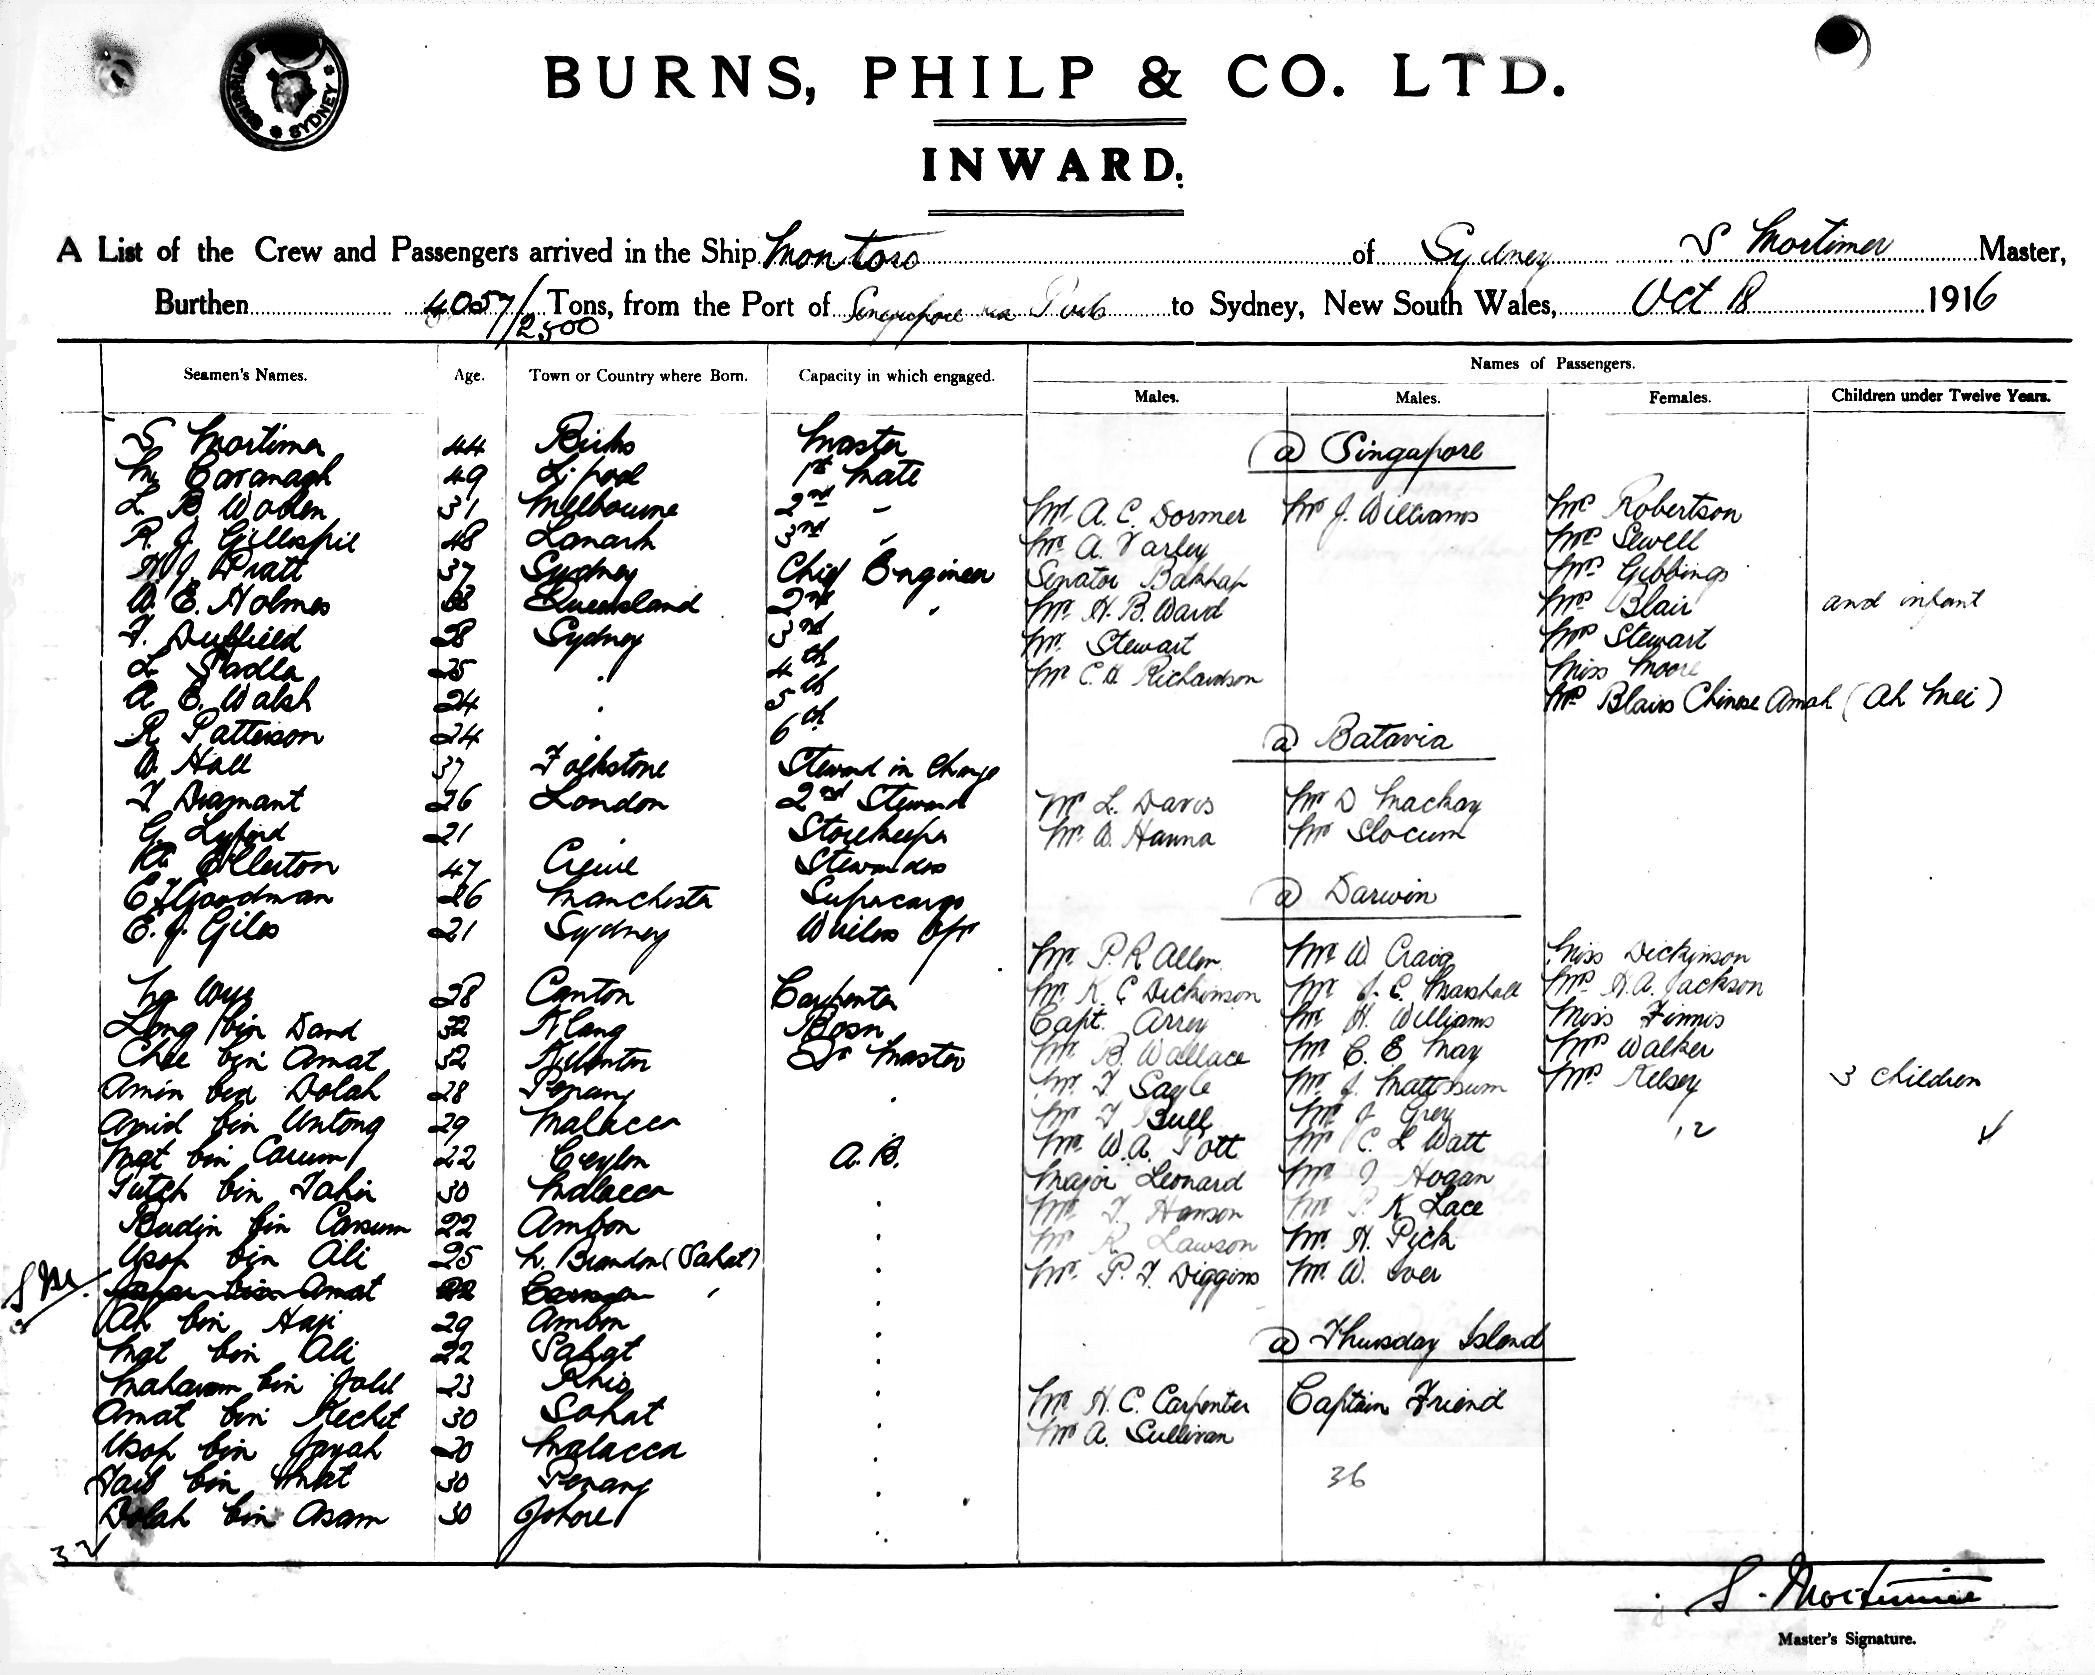 SHIPPING
SYDNEY
BURNS, PHILP & CO. LTD.
INWARD.
A List of the Crew and Passengers arrived in the Ship Montoro of Sydney S Mortimer Master,
Burthen 4057/2500 Tons, from the Port of Singapore via Ports to Sydney, New South Wales, Oct 18 1916
Seamen's Names. Age. Town or Country where Born. Capacity in which engaged. Names of Passengers.
Males. Males. Females. Children under Twelve Years.
S. Mortimer 44 Master
M. Cavanagh 49 L'pool 1st Mate
L. B. 31 Melbourne 2nd "
R. J. Gillespie 48 Lanark 3rd "
H J Pratt 37 Sydney Chief Engineer
W. E. Holmes Queensland 2nd "
F. Duffield 28 Sydney 3rd
L. Sadla 25 " 4th
A. E. Walsh 24 " 5th
R Patterson 24 " 6th
W. Hall 37 Folkstone Steward in Charge
T Diamant 26 London 2nd Steward
G. Lyford 21 Storekeeper
Ellerton 47 Crewe Stewardess
E J Goodman 26 Manchester Supercargo
E. J. Giles 21 Sydney Wireless Opr
28 Canton Carpenter
Long bin Daud 32 Klang Bosn
Chee bin Amat 32 Master
Amin bin Dolah 28 Penang "
Amid bin Untong 29 Malacca
Mat bin 22 Ceylon A.B.
bin Tahir 30 Malacca "
Budin bin 22 Ambon "
Usop bin Ali 25 N. Brandon (Sahat) "
S M. bin Amat 22 "
Ah bin Haji 29 Ambon "
Mat bin Ali 22 Sahat "
bin Jalil 23 Rhio "
Amat bin Kechit 30 Sahat "
Usop bin 20 Malacca "
bin Amat 30 Penang "
Dolah bin Asam 30 Johore "
32
@ Singapore
Mr. A. C. Dormer Mr J. Williams Mrs Robertson
Mr. A. Varley Mrs Sewell
Senator Bakhap Mrs Gibbings
Mr. H. B. Ward Mrs Blair and infant
Mr. Stewart Mrs Stewart
Mr C. H Richardson Miss Moore
Mrs Blairs Chinese Amah (Ah Mei)
@ Batavia
Mr L. Davis Mr D Mackay
Mr. W. Hanna Mr Slocum
@ Darwin
Mr. P. R Allen Mr W. Craig Miss Dickinson
Mr. K. C Dickinson Mr J. C. Marshall Mrs H. A. Jackson
Capt. Arrey Mr H. Williams Miss Finnis
Mr. B. Wallace Mr C. E. May Mrs Walker
Mr. T Sayle Mr. J. Mattssum Mrs Kelsey 3 children
Mr T Bull Mr J Grey 12 4
Mr. W. A. Pott Mr C. L Watt
Major Leonard Mr. J Hogan
Mr. T. Hanson Mr P. K Lace
Mr R. Lawson Mr. H. Pyck
Mr. P. T. Diggins Mr. W. Iver
@ Thursday Island
Mr H. C. Carpenter Captain Friend
Mr A. Sullivan
36
S. Mortimer
Master's Signature.